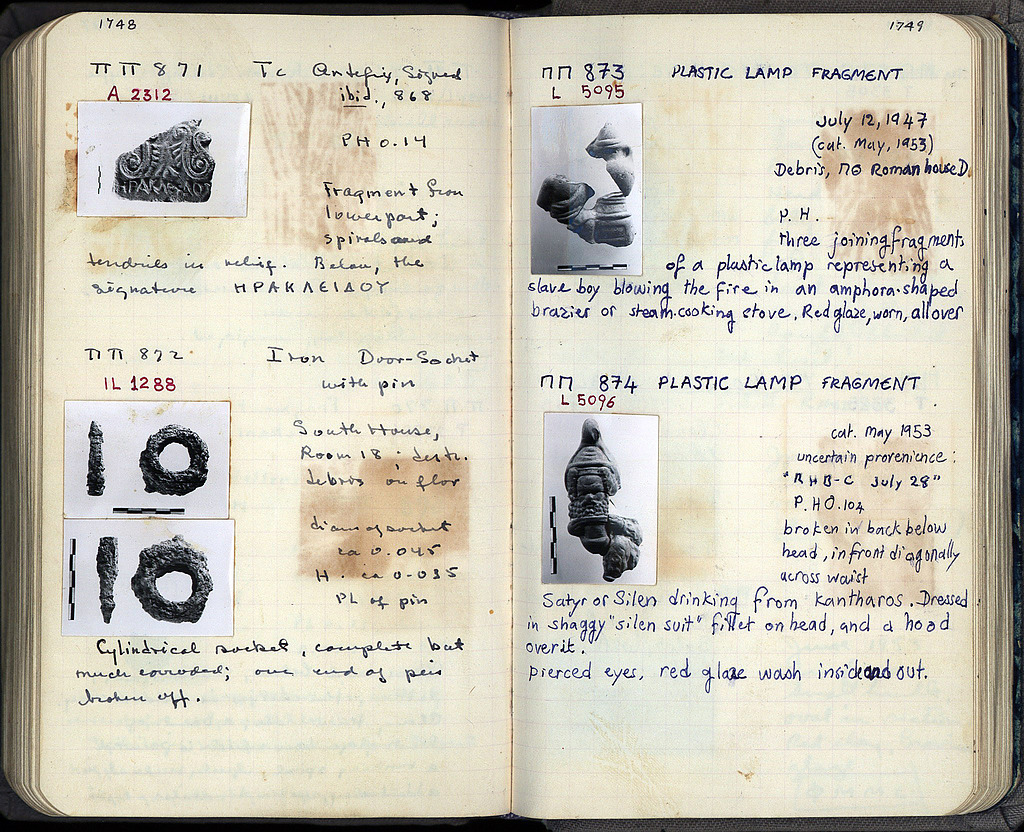 1748
ΠΠ 871 Tc Antefix, Signed
A 2312 ibid., 868
PH 0.14
ΗΡΑΚΛΕΙΔΟΥ
Fragment from
lower part;
spirals and
tendrils in relief. Below, the
signature ΗΡΑΚΛΕΙΔΟΥ
ΠΠ 872 Iron Door-Socket
IL 1288 with pin
South House,
Room 18 destr.
debris on floor
diam of socket
ca 0.045
H. ca 0.035
PL of pin
Cylindrical socket, complete but
much corroded; one end of pin
broken off.
1749
ΠΠ 873 PLASTIC LAMP FRAGMENT
L 5095
July 12, 1947
(cat. May, 1953)
Debris, ΠΘ Roman house D.
P.H.
three joining fragments
of a plastic lamp representing a
slave boy blowing the fire in an amphora-shaped
brazier or steam-cooking stove. Red glaze, worn, all over
ΠΠ 874 PLASTIC LAMP FRAGMENT
L 5096
cat. May 1953
uncertain provenience:
H B-C July 28"
P.H 0.104
broken in back below
head, in front diagonally
across waist
Satyr or Silen drinking from kantharos. Dressed
in shaggy "silen suit" fillet on head, and a hood
over it.
pierced eyes, red glaze wash inside and out.